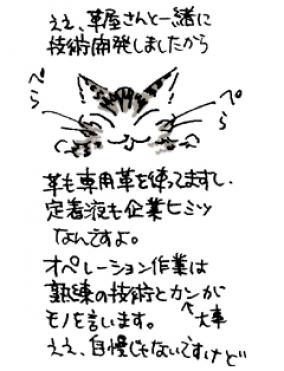 ええ、革屋さんと一緒に
技術開発しましたから
べら
ぺら
革も専用革を練ってますし、
定着液も企業ヒミツ
なんですよ。
オペレーション作業は
熟練の技術とカンが
モノを言います。
大事
ええ、自慢じゃないですけど